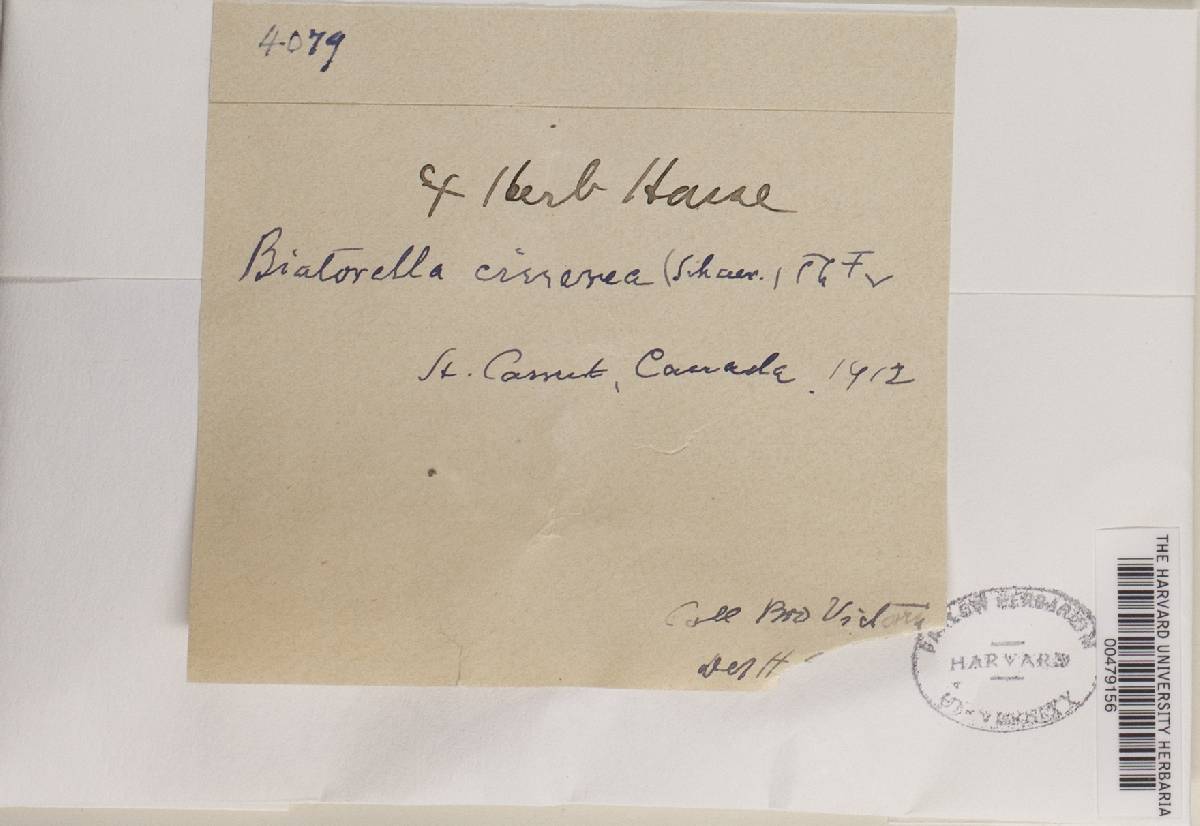 4079
Ex Herb Hasse
Biatorella cinerea (Schaer.) Th Fr
St. Canut, Canada. 1912
Coll Bro Victorin
Det H
FARLOW HERBARIUM
HARVARD
THE HARVARD UNIVERSITY HERBARIA
00479156